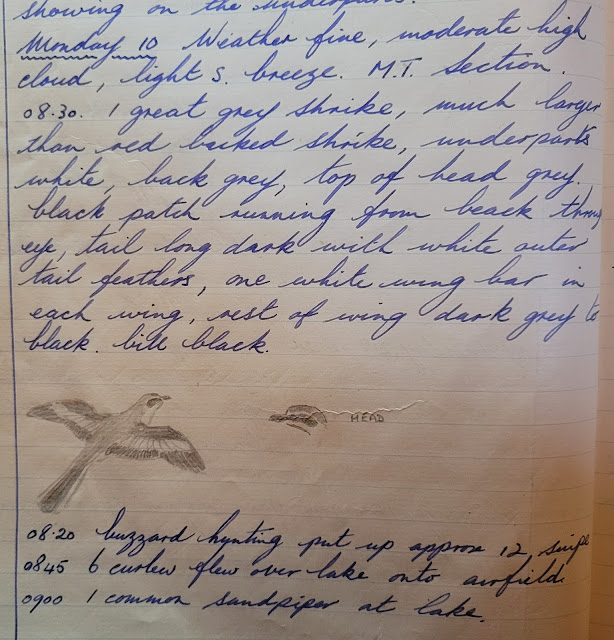 showing on the underparts.
Monday 10 Weather fine, moderate high
cloud, light S. breeze. M.T. Section.
08.30. 1 great grey shrike, much larger
than red backed shrike, underparts
white, back grey, top of head grey.
black patch running from beack throu
eye, tail long dark with white outer
tail feathers, one white wing bar in
each wing, rest of wing dark grey to
black. bill black.
HEAD
08.20 buzzard hunting put up approx 12, snipe
0845 6 curlew flew over lake onto airfield.
0900 1 common sandpiper at lake.